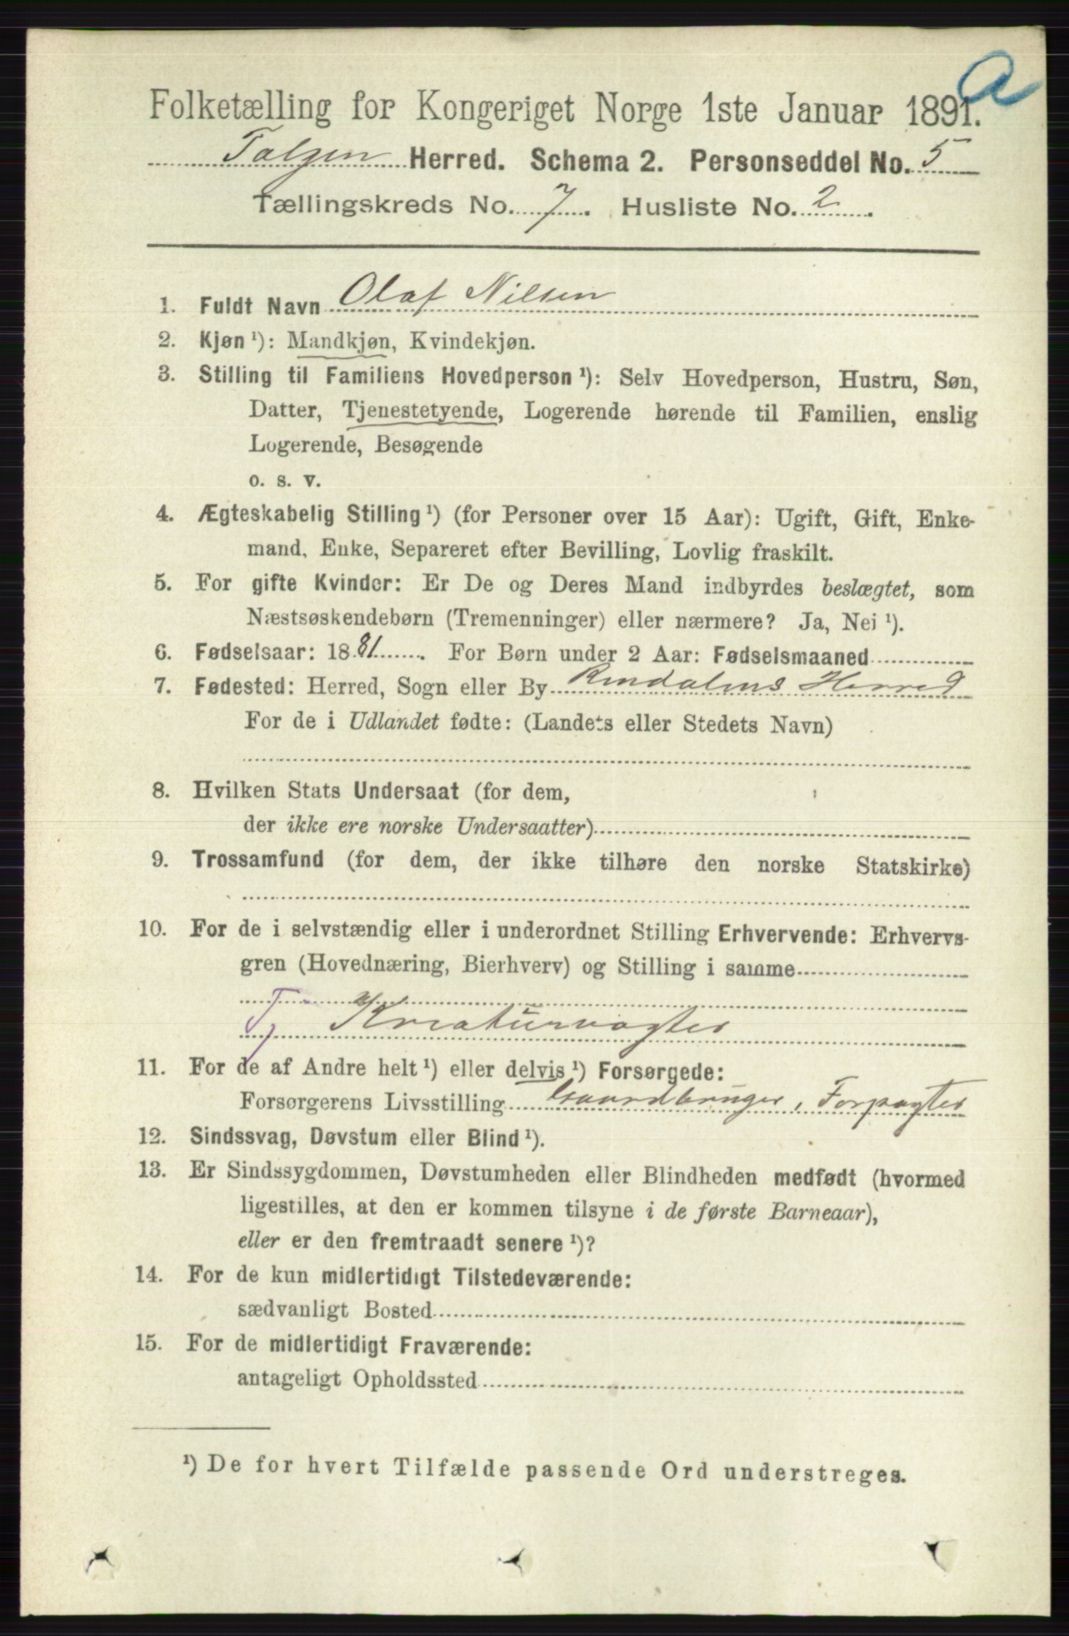 a
Folketælling for Kongeriget Norge 1ste Januar 1891.
Tolgen Herred. Schema 2. Personseddel No. 5
Tællingskreds No. 7. Husliste No. 2.
1. Fuldt Navn Olaf Nilsen
2. Kjøn ¹): Mandkjøn, Kvindekjøn.
3. Stilling til Familiens Hovedperson ¹): Selv Hovedperson, Hustru, Søn,
Datter, Tjenestetyende, Logerende hørende til Familien, enslig
Logerende, Besøgende
o. s. v.
4. Ægteskabelig Stilling ¹) (for Personer over 15 Aar): Ugift, Gift, Enke-
mand, Enke, Separeret efter Bevilling, Lovlig fraskilt.
5. For gifte Kvinder: Er De og Deres Mand indbyrdes beslægtet, som
Næstsøskendebørn (Tremenninger) eller nærmere? Ja, Nei ¹).
6. Fødselsaar: 1881. For Børn under 2 Aar: Fødselsmaaned
7. Fødested: Herred, Sogn eller By Rendalens Herred
For de i Udlandet fødte: (Landets eller Stedets Navn)
8. Hvilken Stats Undersaat (for dem,
der ikke ere norske Undersaatter)
9. Trossamfund (for dem, der ikke tilhøre den norske Statskirke)
10. For de i selvstændig eller i underordnet Stilling Erhvervende: Erhvervs-
gren (Hovednæring, Bierhverv) og Stilling i samme
Tj Kreaturvogter
11. For de af Andre helt ¹) eller delvis ¹) Forsørgede:
Forsørgerens Livsstilling Gaardbruger, Forpagter
12. Sindssvag, Døvstum eller Blind ¹).
13. Er Sindssygdommen, Døvstumheden eller Blindheden medfødt (hvormed
ligestilles, at den er kommen tilsyne i de første Barneaar),
eller er den fremtraadt senere ¹)?
14. For de kun midlertidigt Tilstedeværende:
sædvanligt Bosted
15. For de midlertidigt Fraværende:
antageligt Opholdssted
¹) De for hvert Tilfælde passende Ord understreges.